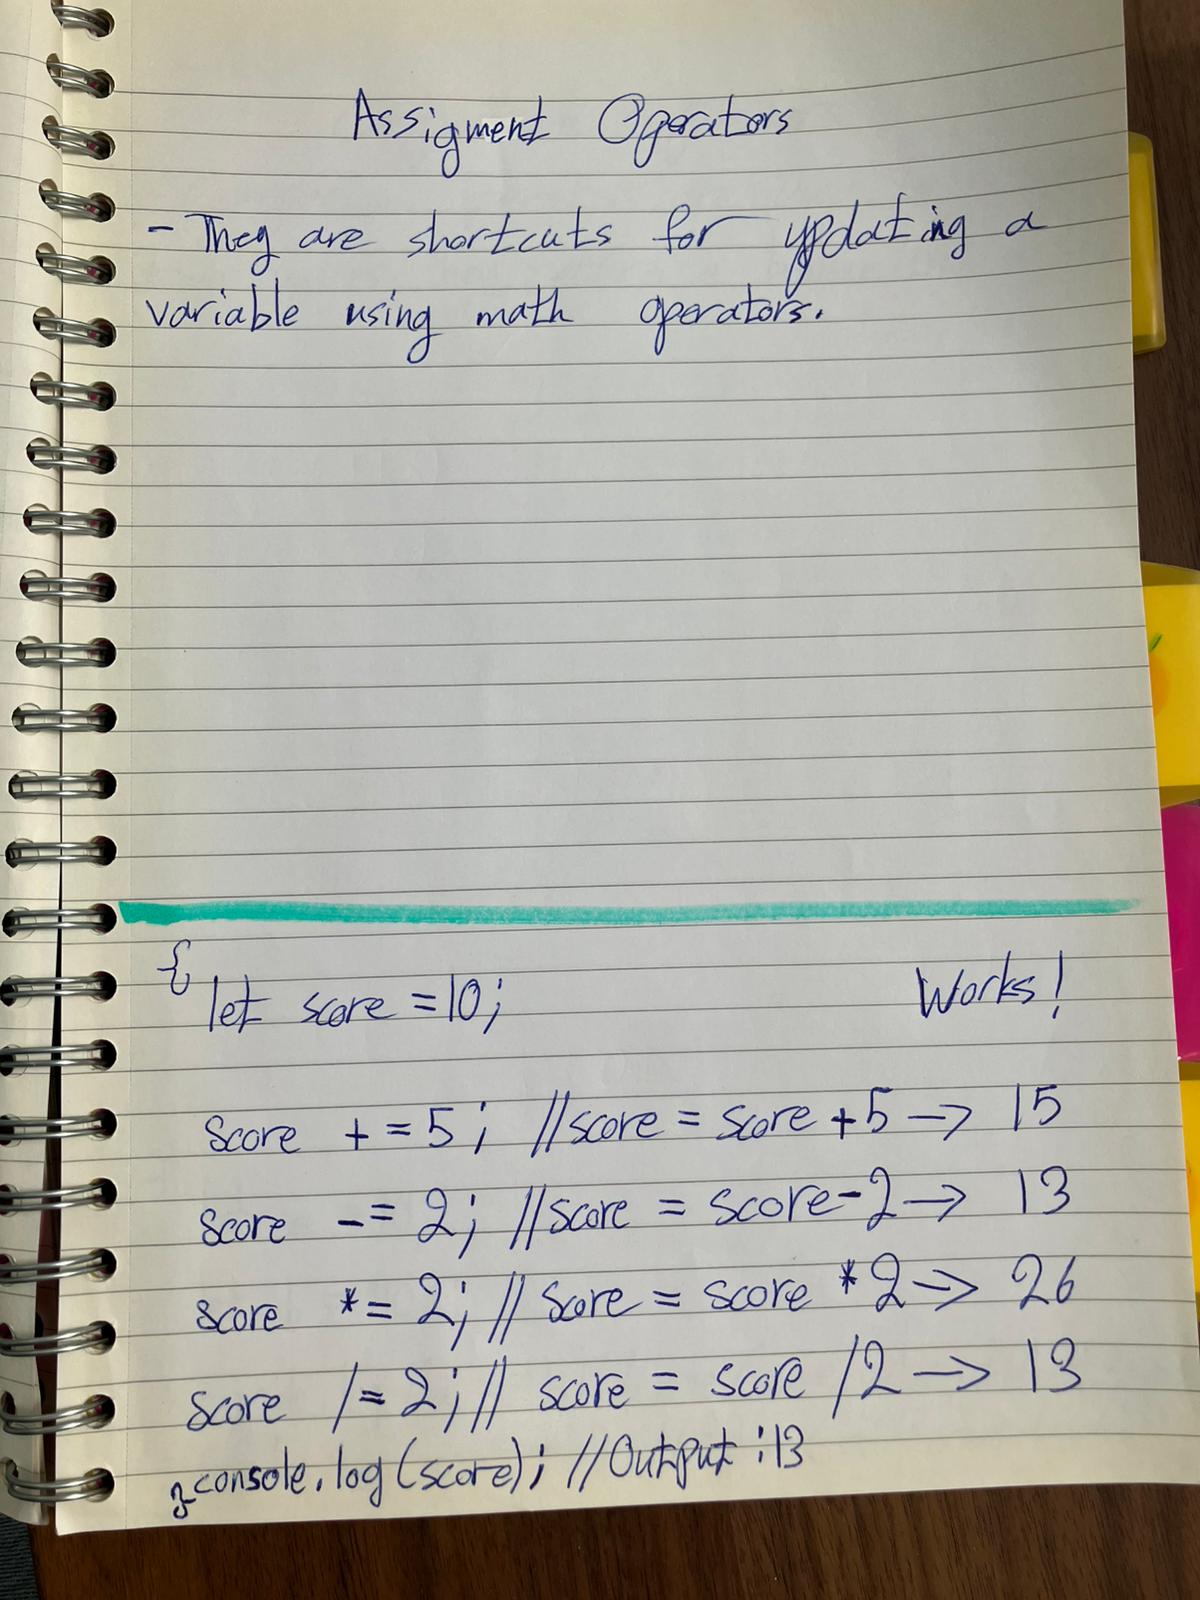 Assigment Operators
- They are shortcuts for updating a
variable using math operators.
{
let score =10;
Works!
score += 5; //score = score +5 -> 15
score -= 2; //score = score-2 -> 13
score *= 2; // score = score *2 -> 26
score /= 2; // score = score /2 -> 13
}console.log(score); //Output :13